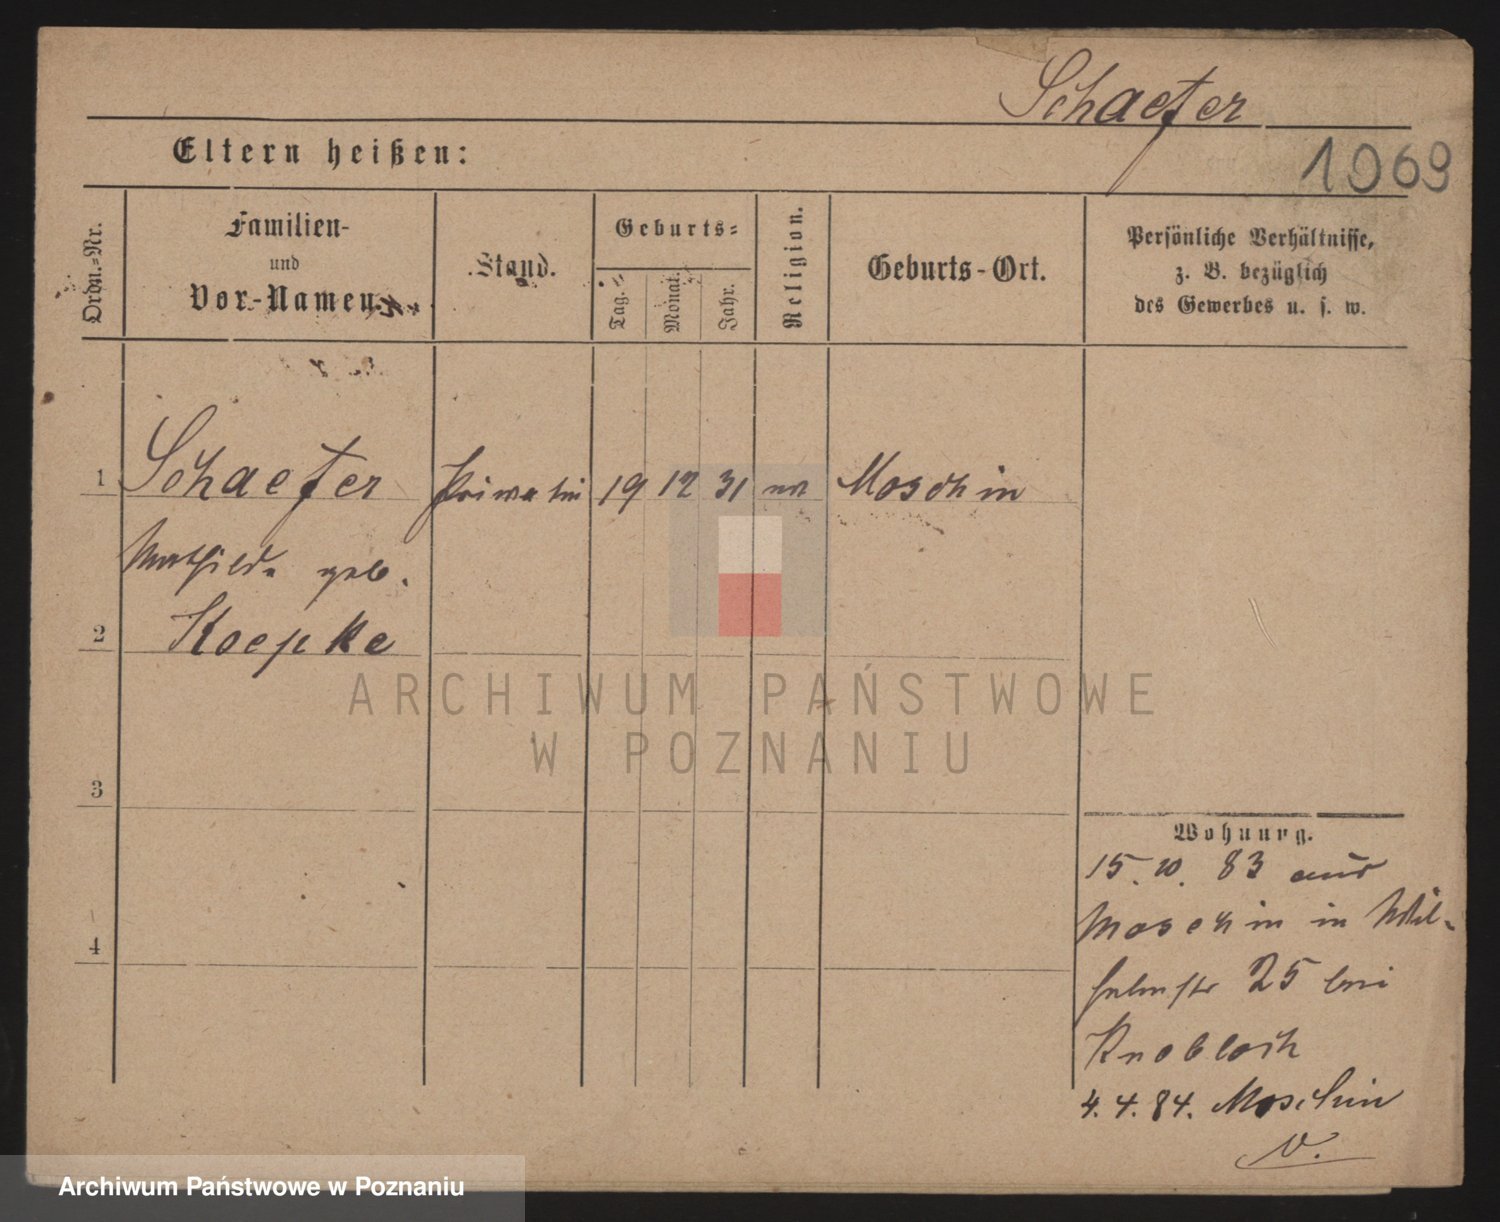 Schaefer
Eltern heißen:
1069
Ordn.-Nr.
Familien-
und
Vor-Namen.
Stand.
Geburts-
Tag.
Monat.
Jahr.
Religion.
Geburts-Ort.
Persönliche Verhältnisse,
z. B. bezüglich
des Gewerbes u. s. w.
1
Schaefer
Privatin
19
12
31
Moschin
Mathilde geb.
2
Koepke
ARCHIWUM PAŃSTWOWE
W POZNANIU
3
Wohnung.
15. 10. 83 aus
Moschin in Wil-
4
helmstr 25 bei
Knobloch
4. 4. 84. Moschin
V.
Archiwum Państwowe w Poznaniu